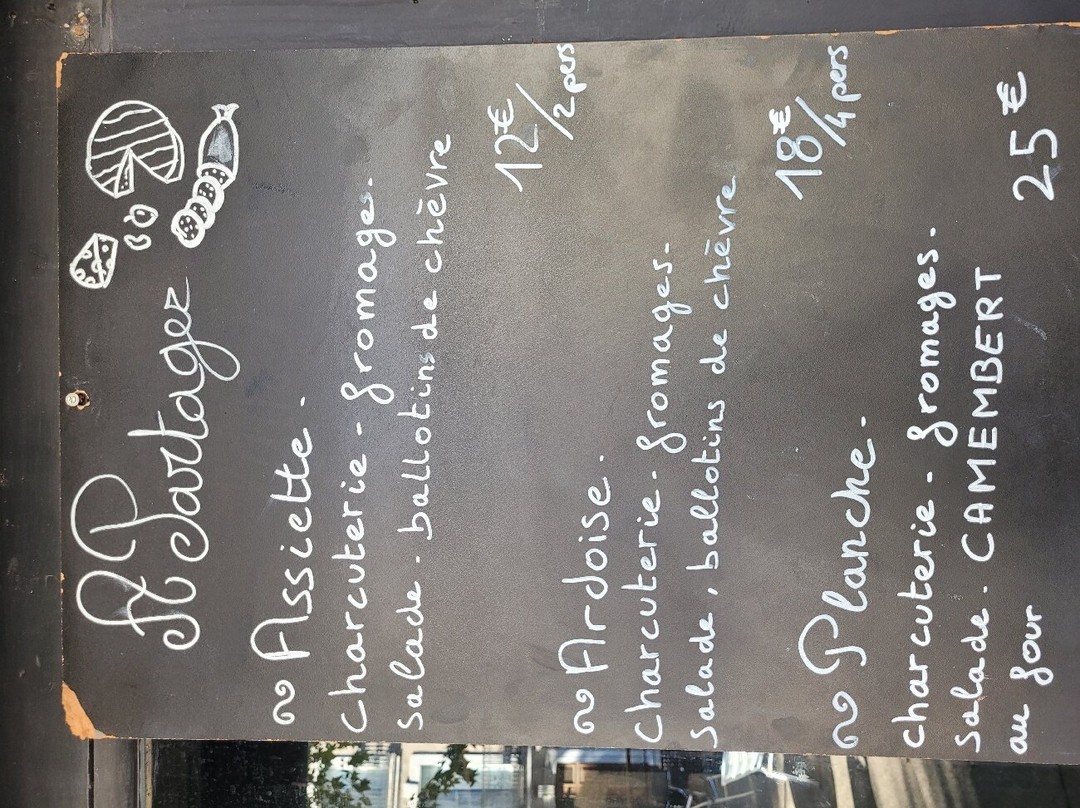 A Partager
Assiette.
Charcuterie - fromages.
Salade - ballotins de chèvre
12€
/2 pers
Ardoise.
Charcuterie - fromages.
Salade, ballotins de chèvre
18€
/4 pers
Planche.
Charcuterie - fromages.
Salade - CAMEMBERT
au four
25€